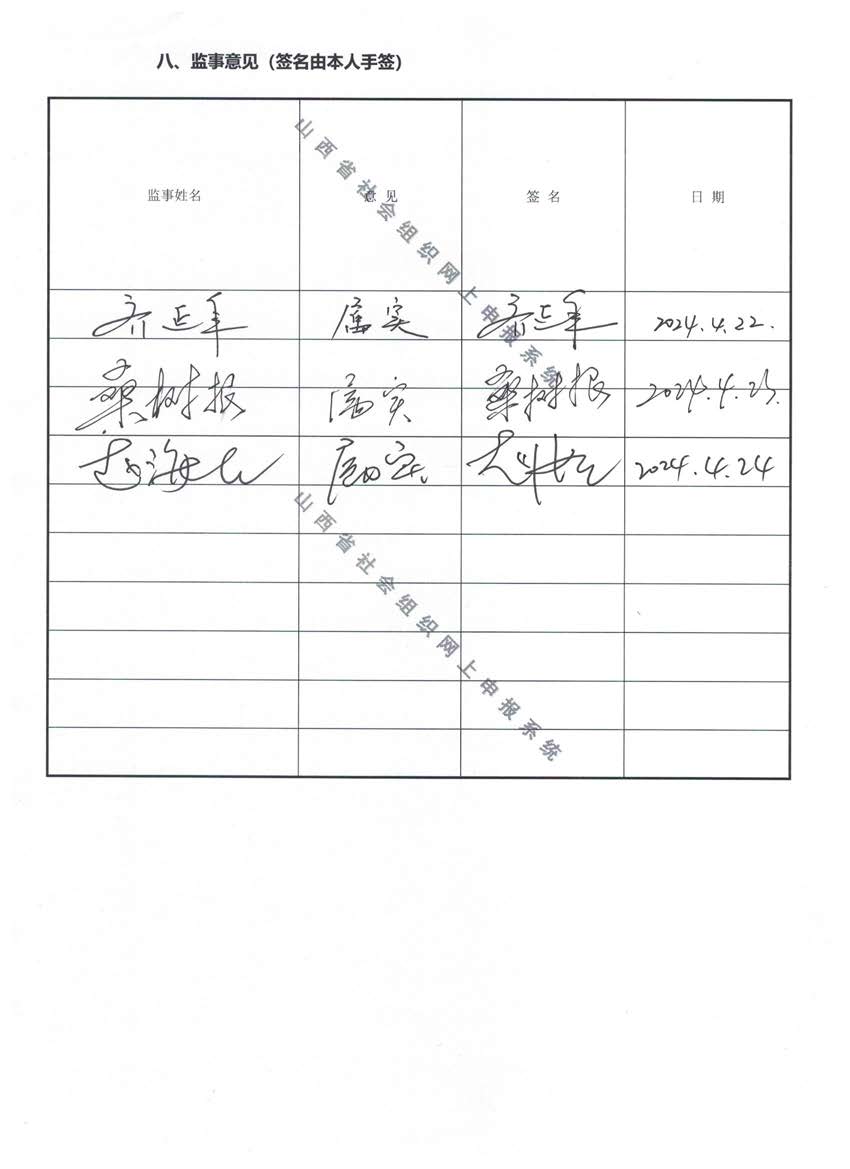 八、监事意见（签名由本人手签）
监事姓名 意 见 签 名 日 期
齐延年 属实 齐延年 2024.4.22.
桑树根 属实 桑树根 2024.4.23.
赵海 属实 2024.4.24
山西省社会组织网上申报系统
山西省社会组织网上申报系统